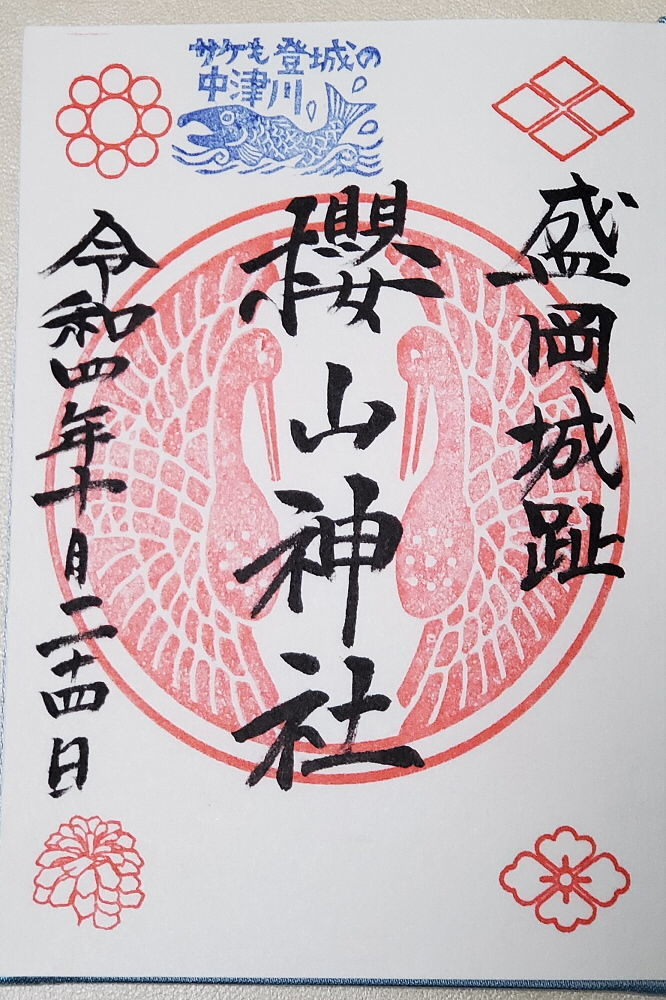 サケも登城の
中津川
盛岡城趾
櫻山神社
令和四年十月二十四日